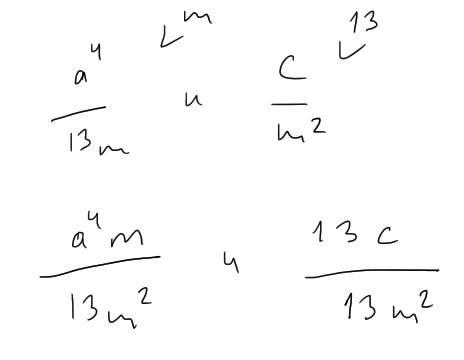 a⁴/13m ✓m и c/m² ✓13
a⁴m/13m² и 13c/13m²